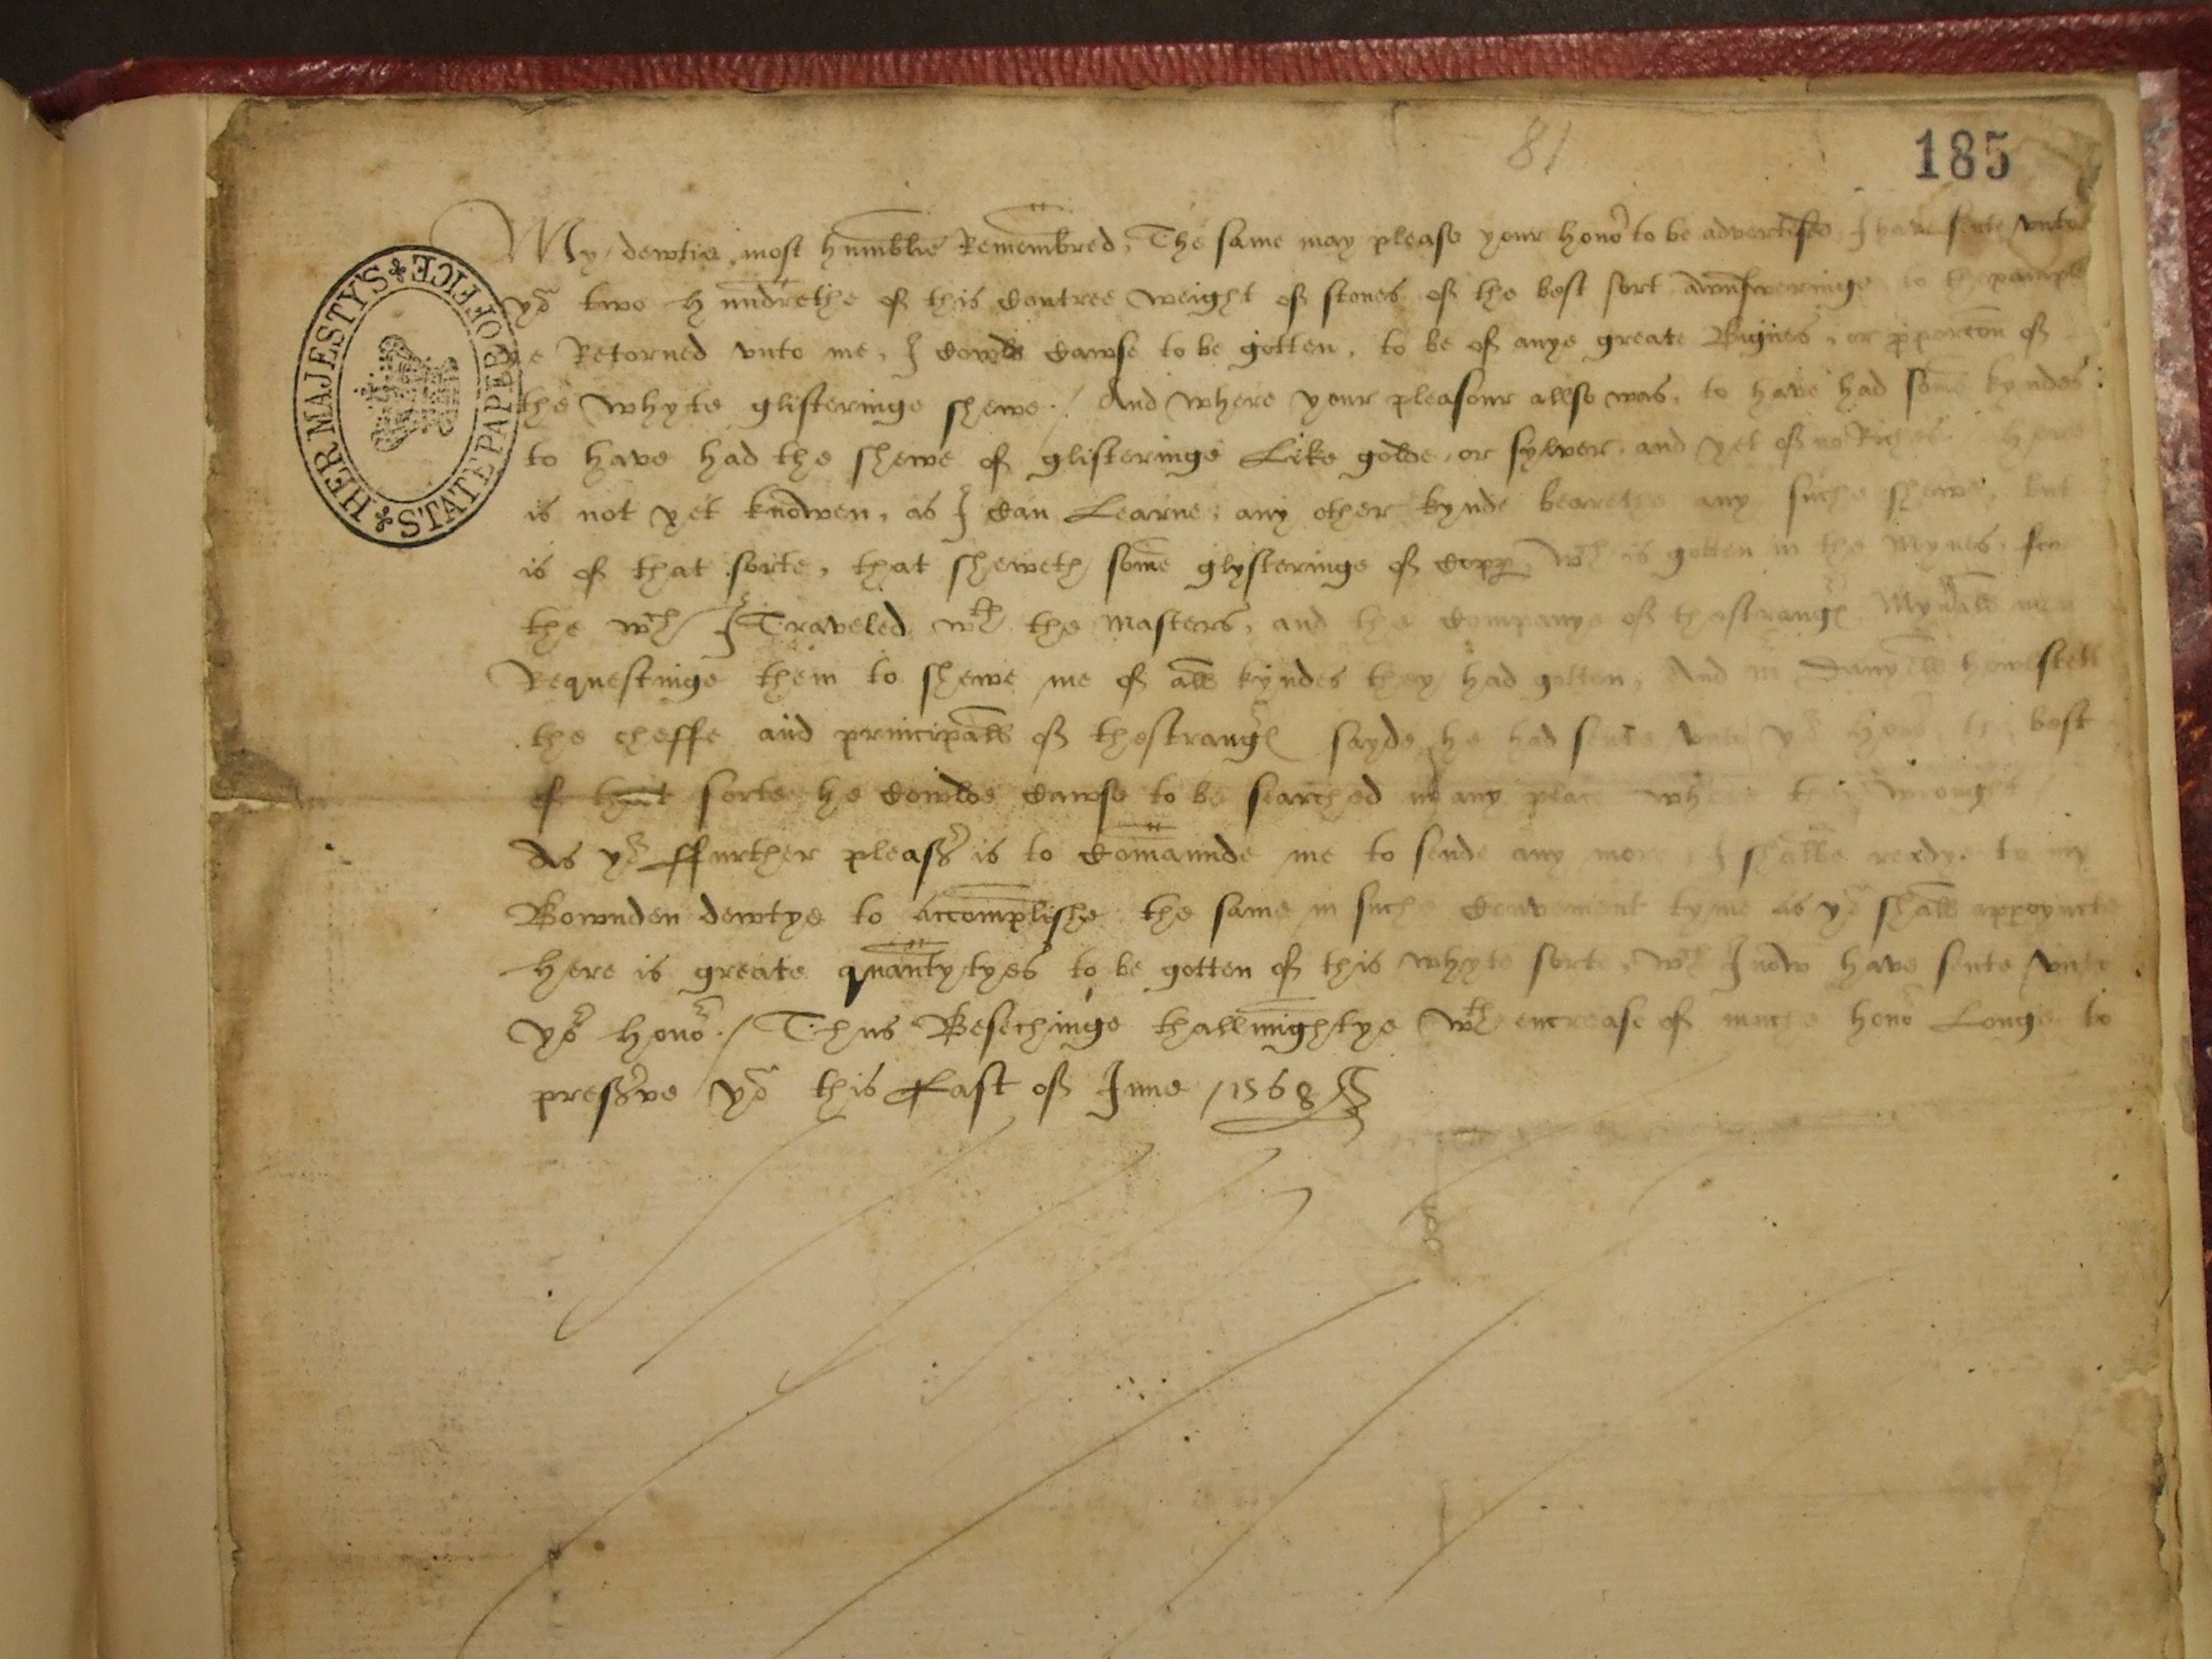 81
185
HER MAJESTY'S STATE PAPER OFFICE
My dewtie most humblie Remembred, The same may please your hono^r to be advertised I have sente unto
yo^r two hundrethe of this Contree Weight of stones of the best sort Aunsweringe to
Retorned unto me, I cowld Cawse to be gotten, to be of anye greate Bignes, or p'porcon of
the whyte glisteringe shewe / And where your pleasour allso was, to have had some kyndes
to have had the shewe of glisteringe Like golde, or sylver, and yet of no Riches. Here
is not yet knowen, as I Can Learne, any other kynde bearethe any suche shewe, but
is of that sorte, that sheweth some glysteringe of Copp^r w^ch is gotten in the Mynes, for
the w^ch I Traveled w^th the Masters, and the Companye of thestrang^rs Mynall men
Requestinge them to shewe me of all kyndes they had gotten, And m^r Danyell
the cheffe and principall of thestrang^rs sayde he had sente unto yo^r Hono^r the best
of that sorte he cowlde Cawse to be searched in any place where they wrought /
As yo^r ffurther pleass^r is to Commaunde me to sende any more I shalbe redye to my
Bownden dewtye to accomplishe the same in suche Convenient tyme as yo^r shall appoyncte
Here is greate quantytyes to be gotten of this whyte sorte, w^ch I now have sente unto
yo^r hono^r / Thus Besechinge thallmightye w^th encrease of muche hono^r Longe to
pres've yo^r this Last of June / 1568